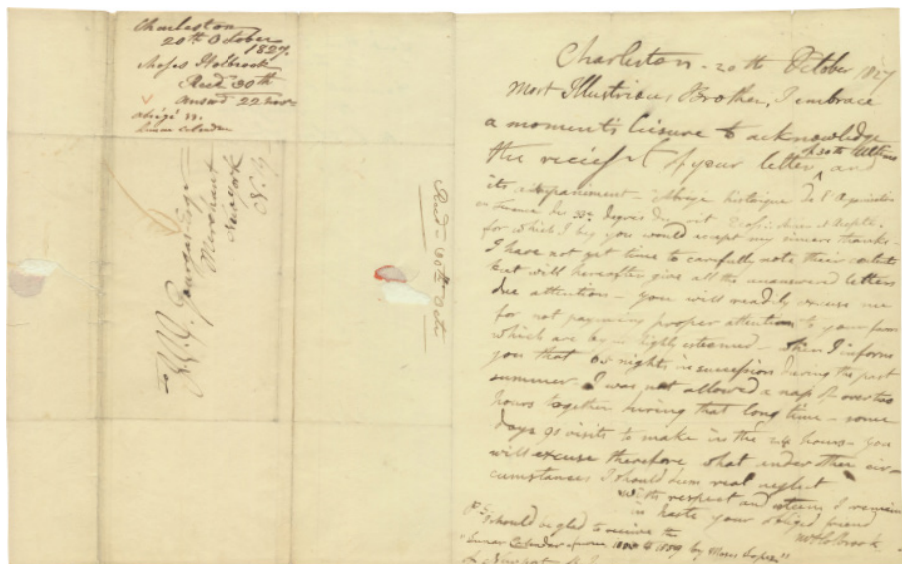 Charleston
20th October
1827.
Moses Holbrook
Recd 30th
Answd 22 Nov
abrégé 33.
Lunar Calendar
To
J. J. J. Gourgas Esqr
Merchant
New York
N. Y.
Recd 30th Octr
Charleston - 20th October 1827
Most Illustrious Brother, I embrace
a moment's leisure to acknowledge
of 20th Ultimo
the reciept of your letter and
its accompaniment - Abrégé historique de l'
en France des 33e degrés du rit
for which I beg you would accept my sincere thanks -
I have not yet time to carefully note their contents
but will hereafter give all the unanswered letters
due attention - you will readily excuse me
for not paying proper attention to your favors
which are by highly esteemed - when I inform
you that 65 nights in succession during the past
summer - I was not allowed a nap of over two
hours together during that long time - some
days 95 visits to make in the 24 hours - you
will excuse therefore what under other cir-
cumstances I should deem real neglect
with respect and esteem I remain
in haste your obliged friend
M Holbrook
P.S. I should be glad to receive the
"Lunar Calendar from to 1859 by Moses Lopez"
of Newport R. I.